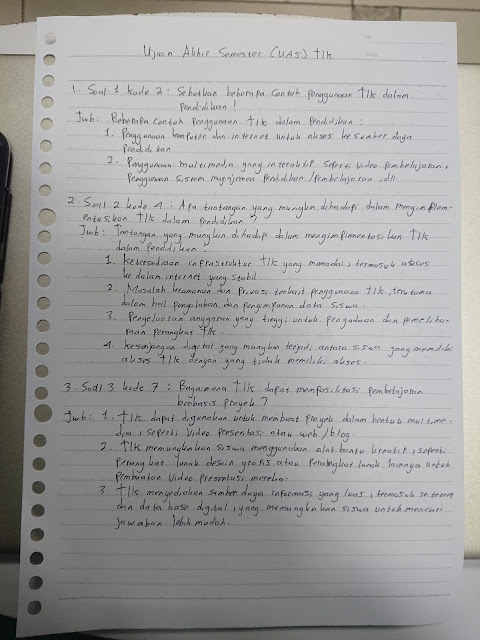 No.
Date
Ujian Akhir Semester (UAS) TIk
1. Soal 1 kode 2 : Sebutkan beberapa contoh penggunaan TIk dalam
pendidikan!
Jwb : Beberapa contoh penggunaan TIk dalam pendidikan :
1. Penggunaan komputer dan internet untuk akses ke sumber daya
pendidikan
2. Penggunaan multimedia yang interaktif seperti video pembelajaran,
penggunaan sistem manajemen pendidikan /pembelajaran, dll.
2. Soal 2 kode 4 : Apa tantangan yang mungkin dihadapi dalam mengimplem-
entasikan TIk dalam pendidikan ?
Jwb : Tantangan yang mungkin dihadapi dalam mengimplementasikan TIk
dalam pendidikan :
1. Ketersediaan infrastruktur TIk yang memadai, termasuk akses
ke dalam internet yang stabil.
2. Masalah keamanan dan privasi terkait penggunaan TIk, terutama
dalam hal pengolahan dan penyimpanan data siswa.
3. Pengeluaran anggaran yang tinggi untuk pengadaan dan pemeliha-
raan perangkat TIk.
4. Kesenjangan digital yang mungkin terjadi antara siswa yang memiliki
akses TIk dengan yang tidak memiliki akses.
3. Soal 3 kode 7 : Bagaimana TIk dapat memfasilitasi pembelajaran
berbasis proyek ?
Jwb : 1. TIk dapat digunakan untuk membuat proyek dalam bentuk multime-
dia, seperti video presentasi atau web/blog.
2. TIk memungkinkan siswa menggunakan alat bantu kreatif, seperti
perangkat lunak desain grafis atau perangkat lunak lainnya untuk
pembuatan video presentasi mereka.
3. TIk menyediakan sumber daya informasi yang luas, termasuk internet
dan data base digital, yang memungkinkan siswa untuk mencari
jawaban lebih mudah.